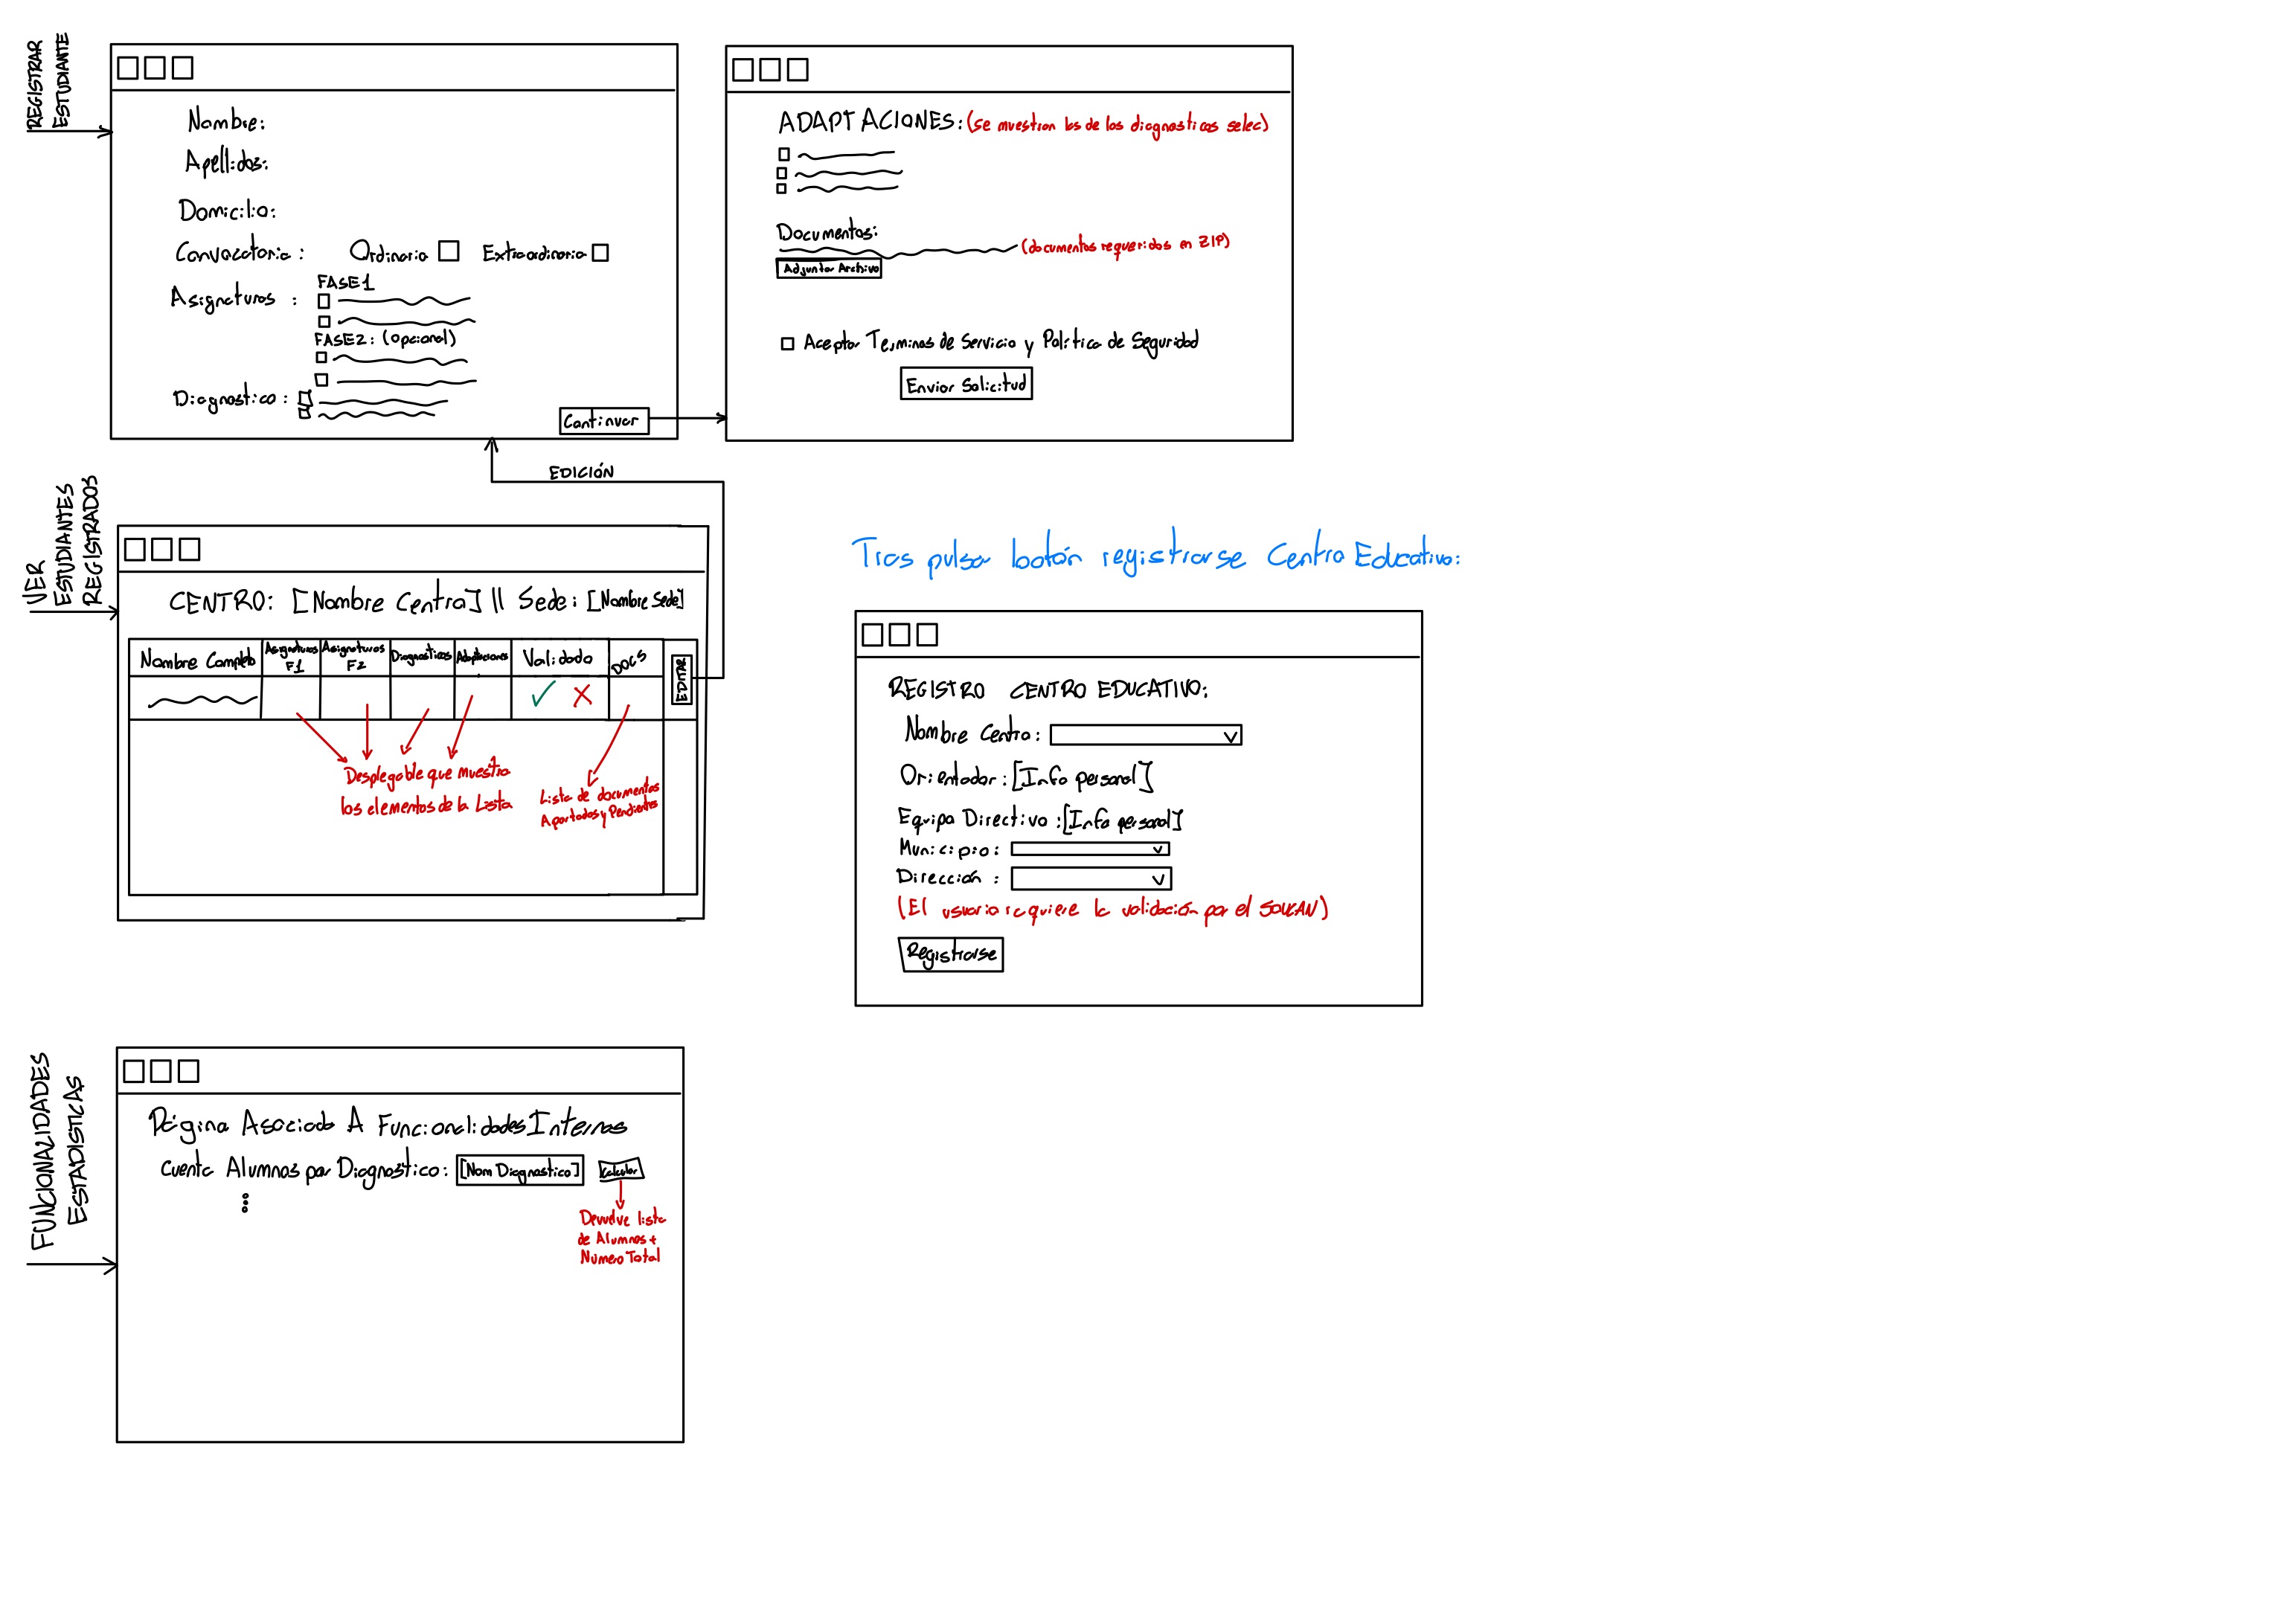 REGISTRAR
ESTUDIANTE
Nombre:
Apellidos:
Domicilio:
Convocatoria: Ordinaria Extraordinaria
Asignaturas:
FASE1
FASE2: (Opcional)
Diagnostico:
Continuar
ADAPTACIONES: (se muestran las de los diagnosticos selec)
Documentos:
(documentos requeridos en ZIP)
Adjuntar Archivo
Aceptar Terminos de Servicio y Politica de Seguridad
Enviar Solicitud
EDICIÓN
VER
ESTUDIANTES
REGISTRADOS
CENTRO: [Nombre Centro] || Sede: [Nombre Sede]
Nombre Completo Asignaturas F1 Asignaturas F2 Diagnosticos Adaptaciones Validado DOCS EDITAR
Desplegable que muestra
los elementos de la Lista
Lista de documentos
Aportados y Pendientes
Tras pulsar botón registrarse Centro Educativo:
REGISTRO CENTRO EDUCATIVO:
Nombre Centro:
Orientador: [Info personal]
Equipo Directivo: [Info personal]
Municipio:
Dirección:
(El usuario requiere la validación por el SOUCAN)
Registrarse
FUNCIONALIDADES
ESTADISTICAS
Página Asociada A Funcionalidades Internas
Cuenta Alumnos por Diagnostico: [Nom Diagnostico] Calcular
Devuelve lista
de Alumnos +
Numero Total